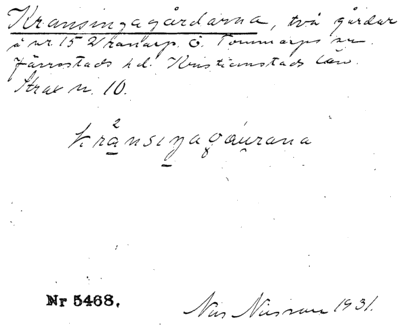 Kransingagårdarna, två gårdar
å nr 15 Vranarp. Ö. Tommarps sn.
Järrestads hd. Kristianstads län.
Strax n. 10.
2
kránsiŋagáurana
Nr 5468. Nils Nilsson 1931.